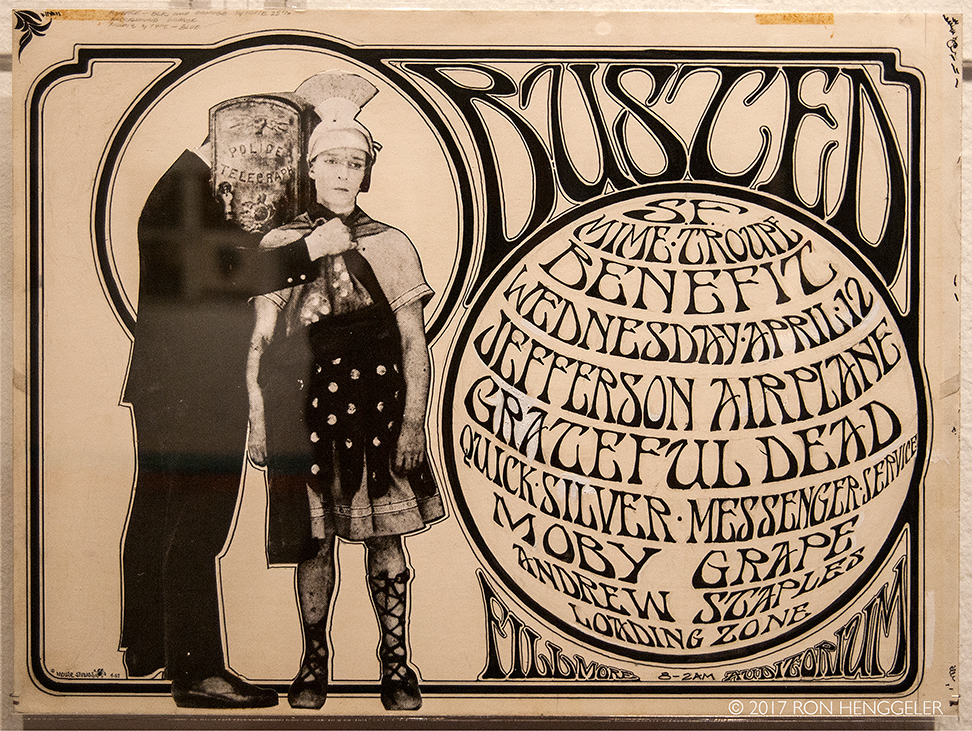 BUSTED
POLICE
TELEGRAPH
SF
MIME·TROUPE
BENEFIT
WEDNESDAY·APRIL·12
JEFFERSON AIRPLANE
GRATEFUL DEAD
QUICK·SILVER·MESSENGER·SERVICE
MOBY GRAPE
ANDREW STAPLES
LOADING ZONE
FILLMORE 8-2AM AUDITORIUM
© 2017 RON HENGGELER